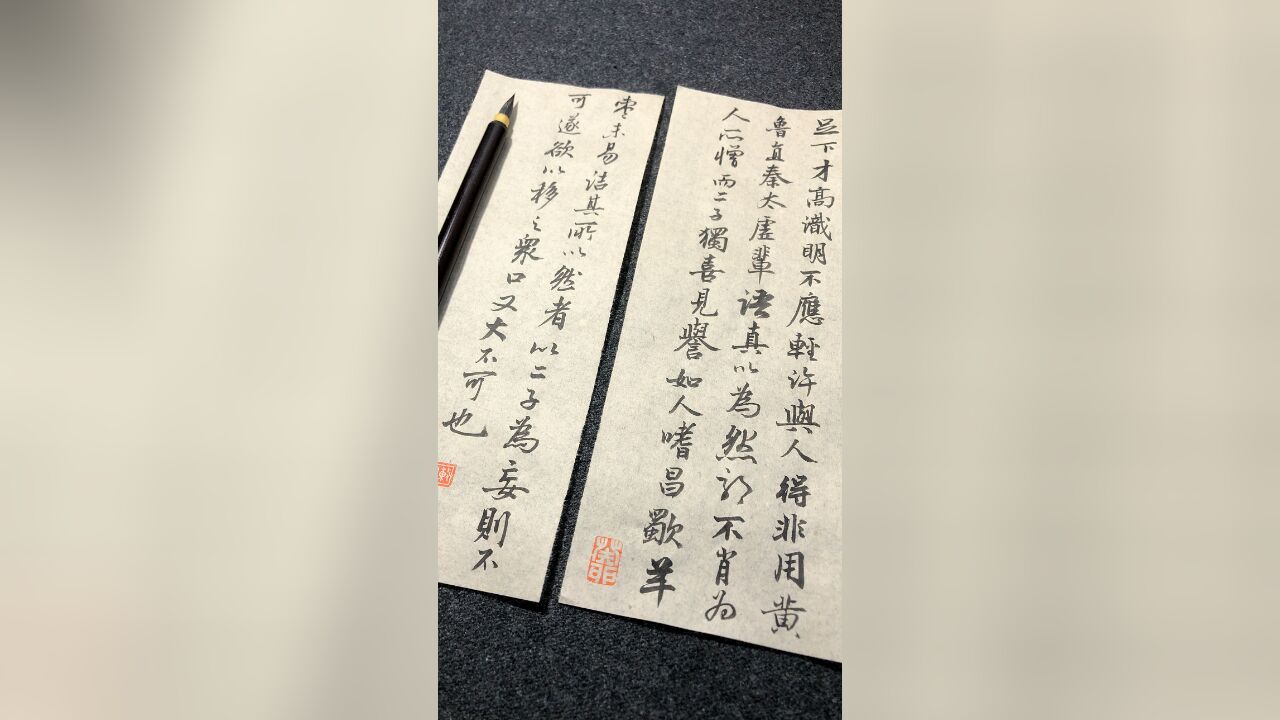 足下才高識明不應輕許與人得非用黃
魯直秦太虛輩語真以為然耶不肖為
人所憎而二子獨喜見譽如人嗜昌歜羊
棗未易詰其所以然者以二子為妄則不
可遂欲以移之眾口又大不可也
軒